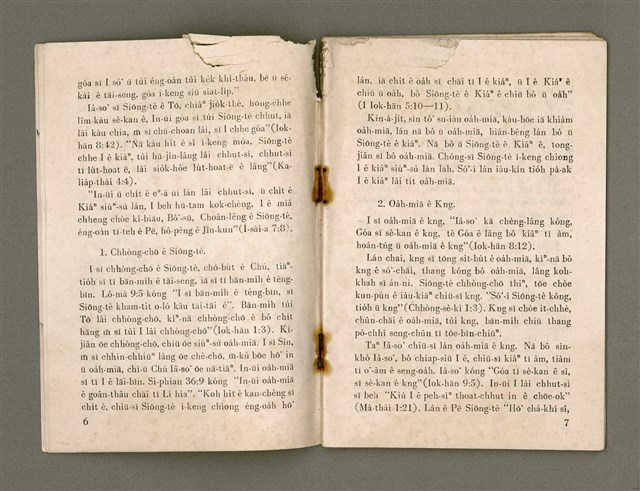 góa sī I só͘ ū tùi éng-oán tùi kek khí-thâu, bē ū sè-
kài ê tāi-seng, góa í-keng siu siat-li̍p."
Iâ-so͘ sī Siōng-tè ê Tō, chiâⁿ jio̍k-thé, hông-chhe
lîm-kàu sè-kan ê. In-ūi góa sī tùi Siōng-tè chhut, iā
lâi kàu chia, m̄ sī chū-choan lâi, sī I chhe góa"(Iok-
hān 8:42). "Nā kàu hit ê sî í-keng móa, Siōng-tè
chhe I ê kiáⁿ, tùi hū-jîn-lâng lâi chhut-sì, chhut-sì
tī lu̍t-hoat ē, lâi sio̍k-hôe lu̍t-hoat-ē ê lâng"(Ka-
lia̍p-thài 4:4).
"In-ūi ū chi̍t ê eⁿ-á ūi lán lâi chhut-sì, ū chi̍t ê
Kiáⁿ siúⁿ-sù lán, I beh hū-tam kok-chèng, I ê miâ
chheng chòe ki-biāu, Bô͘-sū, Choân-lêng ê Siōng-tè,
éng-oán tī-teh ê Pē, hô-pêng ê Jîn-kun"(Í-sài-a 7:8).
1. Chhòng-chō ê Siōng-tè.
I sī chhòng-chō ê Siōng-tè, chō-bu̍t ê Chú, tiāⁿ-
tio̍h sī tī bān-mi̍h ê tāi-seng, iā sī tī bān-mi̍h ê téng-
bīn. Lô-má 9:5 kóng "I sī bān-mi̍h ê téng-bīn, sī
Siōng-tè kham-tit o-ló kàu tāi-tāi ê". Bān-mi̍h tùi
Tō lâi chhòng-chō, kìⁿ-nā chhòng-chō ê bô chi̍t
hāng m̄ sī tùi I lâi chhòng-chō"(Iok-hān 1:3). Kí-
jiân ōe chhòng-chō, chiū ōe siúⁿ-sù oa̍h-miā. I sī Sîn,
m̄ sī chhin-chhiūⁿ lâng ōe chè-chō, m̄-kú bōe hō͘ in
ū oa̍h-miā, chí-ū Chú Iâ-so͘ ōe nā-tiāⁿ. In-ūi oa̍h-miā
sī tī I ê lāi-bīn. Si-phian 36:9 kóng "In-ūi oa̍h-miā
ê goân-thâu chāi tī Lí hia". "Koh hit ê kan-chèng sī
chit ê, chiū-sī Siōng-tè í-keng chiong éng-oa̍h hō͘
6
lán, iā chit ê oa̍h sī chāi tī I ê kiáⁿ, ū I ê Kiáⁿ ê
chiū ū oa̍h, bô Siōng-tè ê Kiáⁿ ê chiū bô ū oa̍h"
(I Iok-hān 5:10—11).
Kin-á-ji̍t, sìn tô͘ su-iàu oa̍h-miā, kàu-hōe iā khiàm
oa̍h-miā, lán nā bô ū oa̍h-miā, hián-bêng lán bô ū
Siōng-tè ê kiáⁿ. Nā bô ū Siōng-tè ê Kiáⁿ ê, tong-
jiân sī bô oa̍h-miā. Chóng-sī Siōng-tè í-keng chiong
I ê kiáⁿ siúⁿ-sù lán lah. Só͘-í lán iàu-kín tio̍h pà-ak
I ê kiáⁿ lâi tit oa̍h-miā.
2. Oa̍h-miā ê Kng.
I sī oa̍h-miā ê kng, "Iâ-so͘ kā chèng-lâng kóng,
Góa sī sè-kan ê kng, tè Góa ê lâng bô kiâⁿ tī àm,
hoán-tńg ū oa̍h-miā ê kng"(Iok-hān 8:12).
Lán chai, kng sī tōng si̍t-bu̍t ê oa̍h-miā, kìⁿ-nā bô
kng ê só͘-chāi, thang kóng bô oa̍h-miā, lâng koh-
khah sī án-ni. Siōng-tè chhòng-chō thiⁿ, tōe chòe
kun-pún ê iàu-kiāⁿ chiū-sī kng. "Só͘-í Siōng-tè kóng,
tio̍h ū kng"(Chhòng-sè-kì 1:3). Kng sī chòe it-chhè,
chûn-chāi ê oa̍h-miā, tùi kng, bān-mi̍h chiū thang
pó-chhî seng-chûn tī tōe-bīn-chiūⁿ.
Taⁿ Iâ-so͘ chiū-sī lán oa̍h-miā ê kng. Nā bô sìn-
khò Iâ-so͘, bô chiap-siū I ê, chiū-sī kiâⁿ tī àm, tiàm
tī o͘-àm ê seng-oa̍h. Iâ-so͘ kóng "Góa tī sè-kan ê sî,
sī sè-kan ê kng"(Iok-hān 9:5). In-ūi I lâi chhut-sì
sī beh "Kiù I ê peh-sìⁿ thoat-chhut in ê chōe-ok"
(Má-thài 1:21). Lán ê Pē Siōng-tè "Hō͘ chá-khí sî,
7